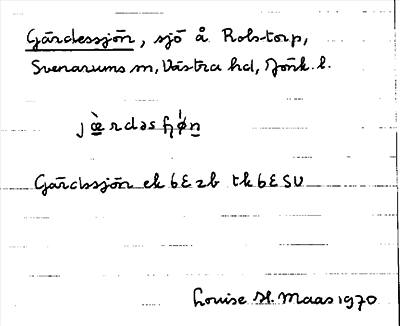 Gärdessjön, sjö å Rolstorp,
Svenarums sn, Västra hd, Jönk. l.
Gärdssjön ek 6E2b tk 6E SV
Louise H. Maas 1970